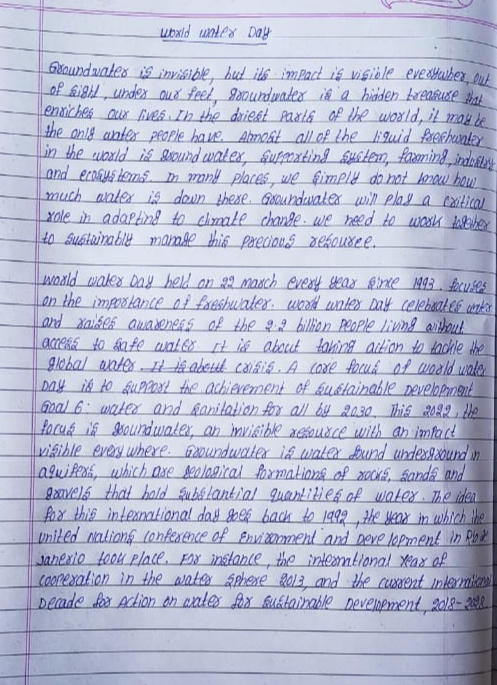 World Water Day
Groundwater is invisible, but its impact is visible everywher out
of sight, under our feet, groundwater is a hidden treasure that
enriches our lives. In the driest parts of the world, it may be
the only water people have. Almost all of the liquid freshwater
in the world is ground water, supporting system, farming, industry
and ecosystems. In many places, we simply do not know how
much water is down there. Groundwater will play a critical
role in adapting to climate change. we need to work together
to sustainably manage this precious resource.
World water Day held on 22 march every year since 1993. focuses
on the importance of freshwater. World water Day celebrates water
and raises awareness of the 2.2 billion people living without
access to safe water. It is about taking action to tackle the
global water. It is about crisis. A core focus of world water
Day is to support the achievement of Sustainable Development
Goal 6: water and sanitation for all by 2030. This 2022, the
focus is groundwater, an invisible resource with an impact
visible every where. Groundwater is water found underground in
aquifers, which are geological formations of rocks, sands and
gravels that hold substantial quantities of water. The idea
for this international day goes back to 1992, the year in which the
united nations conference of Environment and Development in Rio
Janerio took place. For instance, the international Year of
cooperation in the water sphere 2013, and the current international
Decade for Action on water for sustainable Development, 2018-2028.